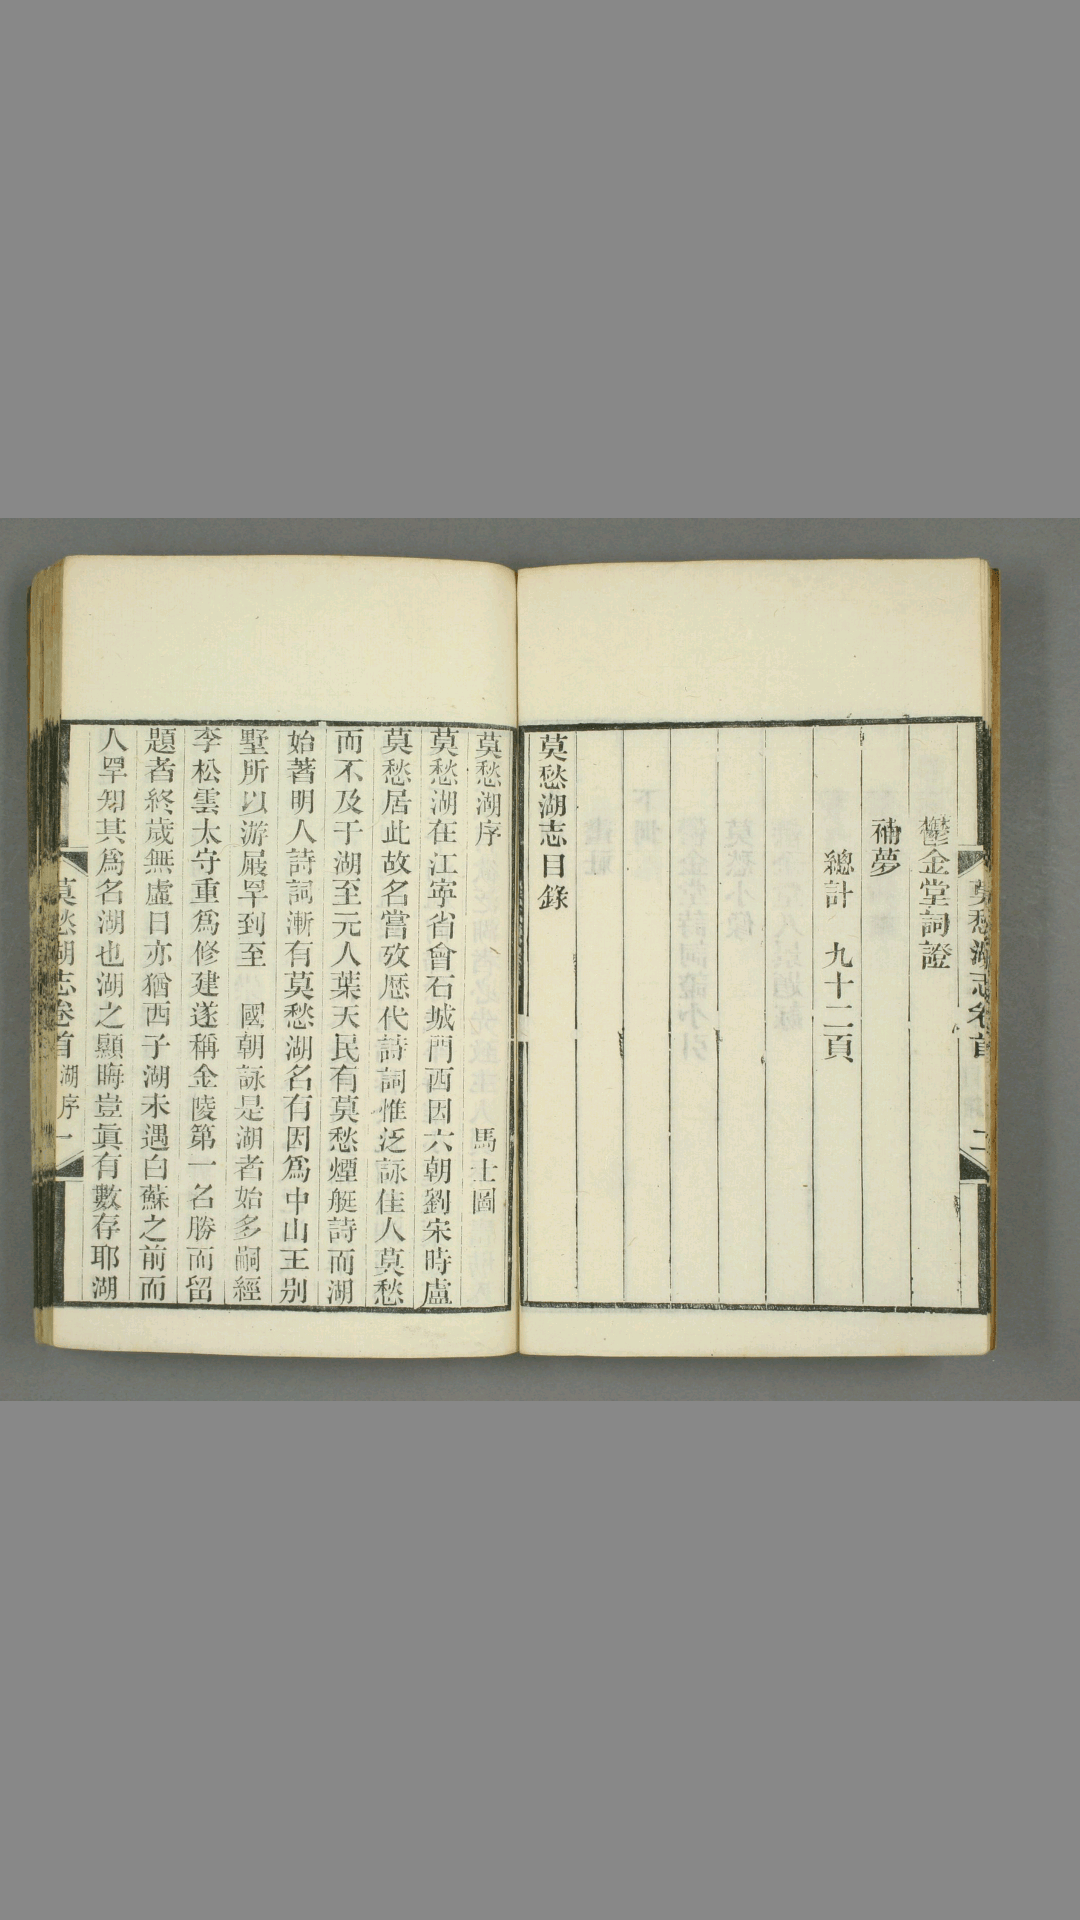 莫愁湖志卷首
二
鬱金堂詞證
補夢
總計 九十二頁
莫愁湖志目錄
莫愁湖序 馬士圖
莫愁湖在江寧省會石城門西因六朝劉宋時盧
莫愁居此故名嘗攷歷代詩詞惟泛詠佳人莫愁
而不及于湖至元人葉天民有莫愁煙艇詩而湖
始著明人詩詞漸有莫愁湖名有因爲中山王别
墅所以游屐罕到至 國朝詠是湖者始多嗣經
李松雲太守重爲修建遂稱金陵第一名勝而留
題者終歲無虛日亦猶西子湖未遇白蘇之前而
人罕知其爲名湖也湖之顯晦豈眞有數存耶湖
莫愁湖志卷首 湖序 一